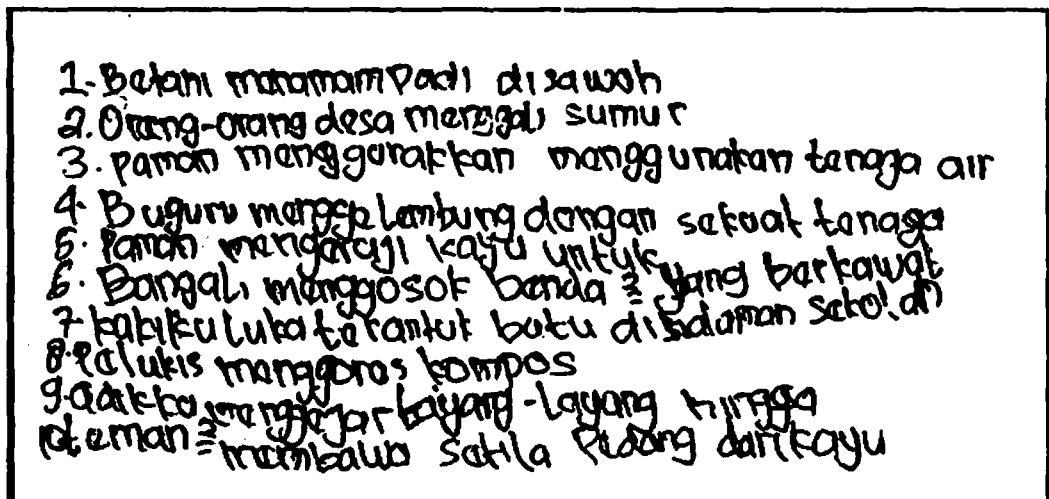 1. Betani manamam Padi disawoh
2. Orang-orang desa menggali sumur
3. paman manggarakkan manggunakan tanaga air
4. Buguru manggelambung dangan sakuat tanaga
5. Paman mangaraji kayu untuk
6. Bangali manggosok banda 2 yang barkawat
7 kakikku luka tarantuk batu dihalaman sakolah
8. Palukis manggoras kompos
9. adikko mangajar layang-layang hingga
10. teman 2 mambawa Padang darikayu